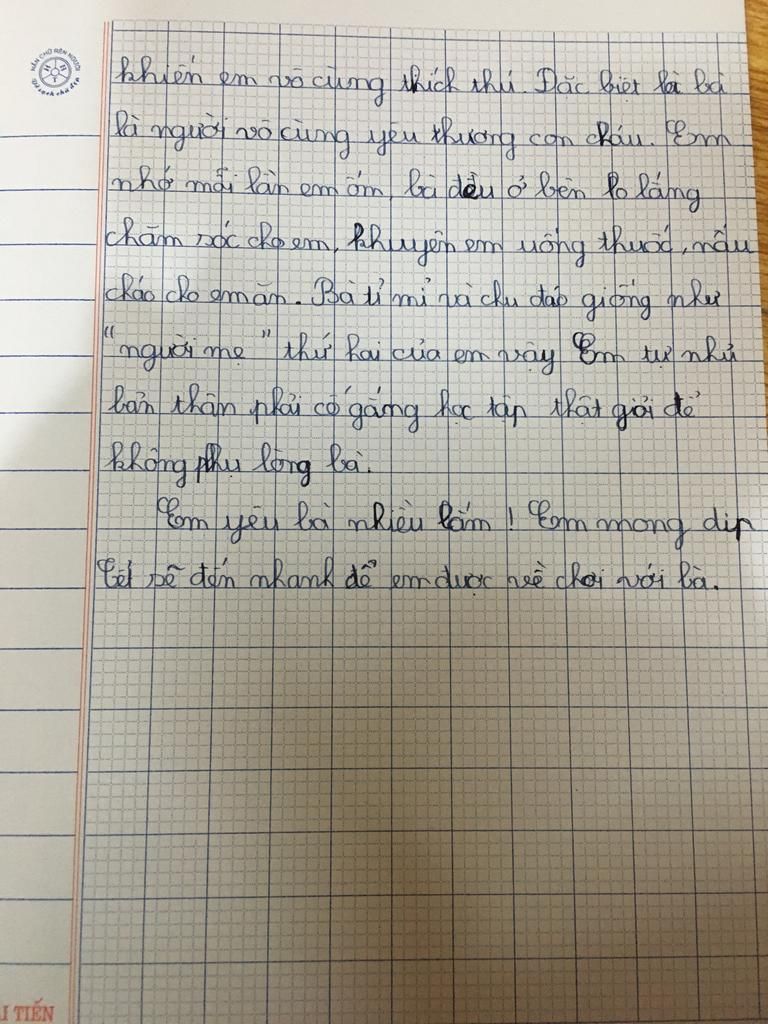 NẮN CHỮ RÈN NGƯỜI
Vở sạch chữ đẹp
khiến em vô cùng thích thú. Đặc biệt là bà
là người vô cùng yêu thương con cháu. Em
nhớ mỗi lần em ốm, bà đều ở bên lo lắng
chăm sóc cho em, khuyên em uống thuốc, nấu
cháo cho em ăn. Bà tỉ mỉ và chu đáo giống như
"người mẹ" thứ hai của em vậy Em tự nhủ
bản thân phải cố gắng học tập thật giỏi để
không phụ lòng bà.
Em yêu bà nhiều lắm! Em mong dịp
Tết sẽ đến nhanh để em được về chơi với bà.
I TIẾN